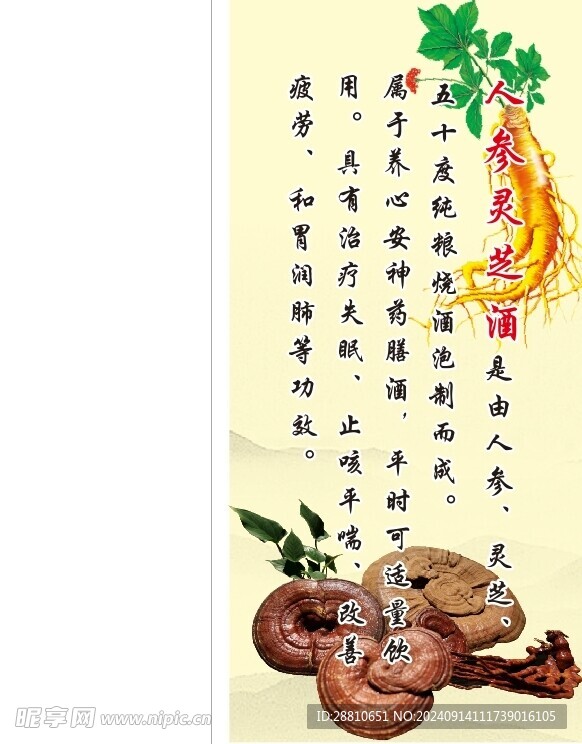 人参灵芝酒是由人参、灵芝、
五十度纯粮烧酒泡制而成。
属于养心安神药膳酒，平时可适量饮
用。具有治疗失眠、止咳平喘、改善
疲劳、和胃润肺等功效。
昵享网 www.nipic.cn
ID:28810651 NO:20240914111739016105